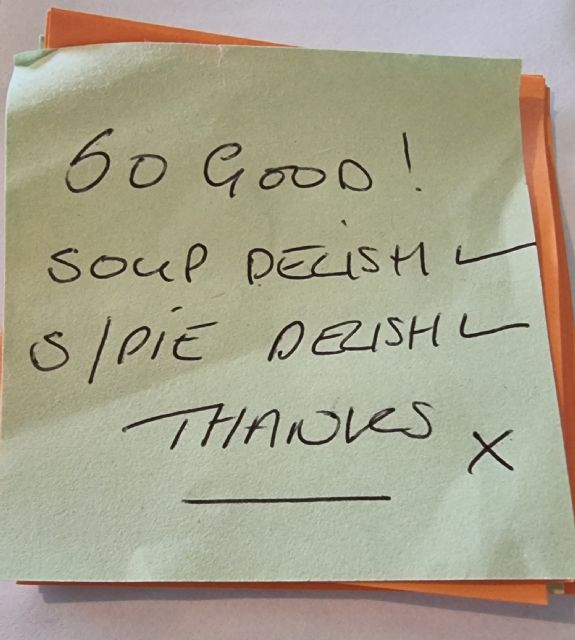 SO GOOD!
SOUP DELISH ✓
S/PIE DELISH ✓
THANKS x